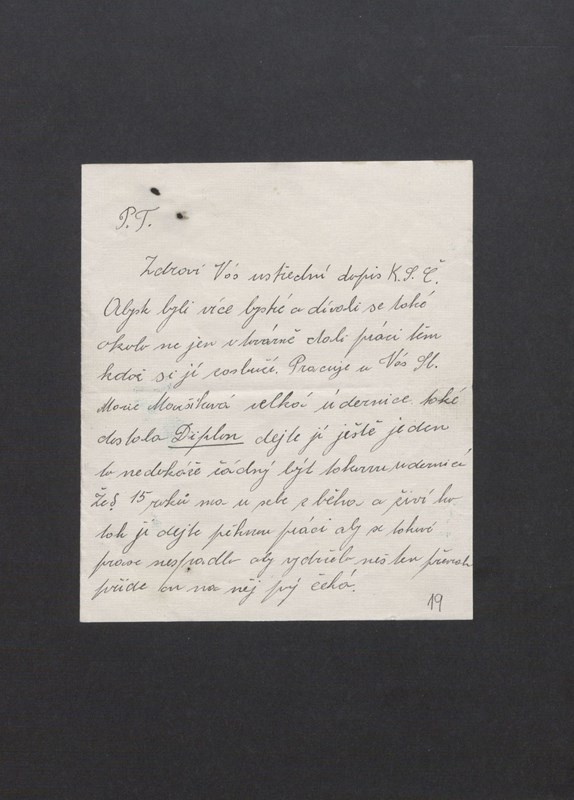 P.T.
Zdraví Vás ustřední dopis K.S.Č.
Abysk byli více bystré a dívali se také
okolo ne jen v továrně dali práci těm
kdož si jí zaslučí. Pracuje u Vás Sl.
Marie Moušíková velká údernice také
dostala Diplon dejte jí ještě jeden
to nedokáže žádný být takovou udernicí
Žeš 15 roků ma u sebe zběha a živí ho
tak jí dejte pěknou práci aby se takové
prase nespadlo aby vydržela než ten převrat
přide on na něj prý čeká.
19